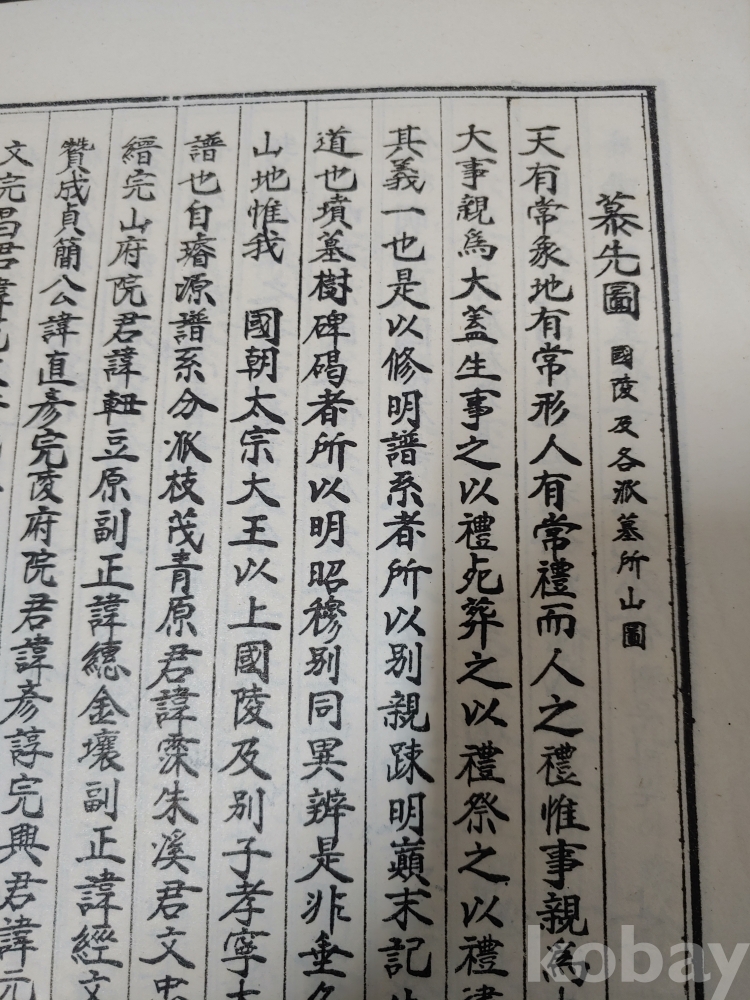 慕先圖 國陵及各派墓所山圖
天有常象地有常形人有常禮而人之禮惟事親為
大事親爲大蓋生事之以禮死葬之以禮祭之以禮
其義一也是以修明譜系者所以別親踈明巔末記
道也墳墓樹碑碣者所以明昭穆別同異辨是非垂久
山地惟我 國朝太宗大王以上國陵及別子孝寧
譜也自璿源譜系分派枝茂青原君諱 朱溪君文忠
縉完山府院君諱 豆原副正諱總金壤副正諱經文
贊成貞簡公諱直彥完陵府院君諱彥諄完興君諱元
文完昌君諱
kobay